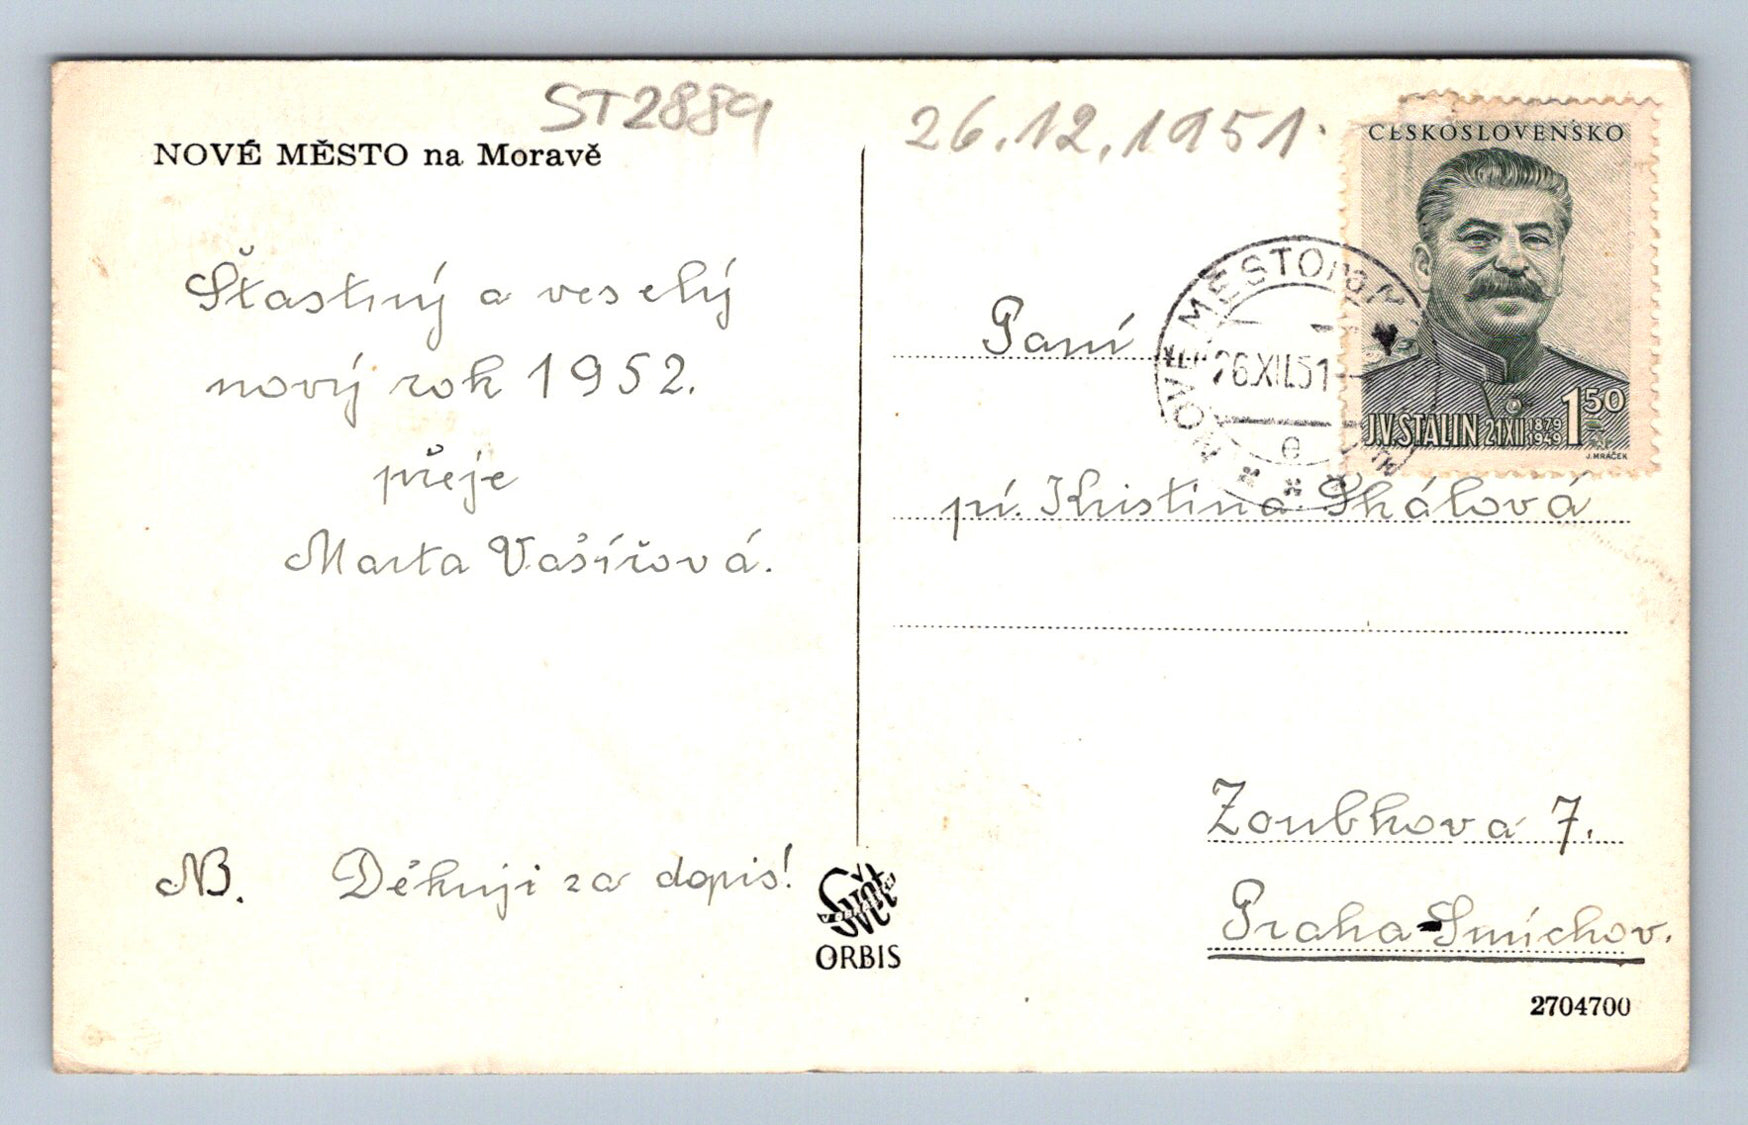 ST2889
26.12.1951.
NOVÉ MĚSTO na Moravě
Šťastný a veselý
nový rok 1952.
přeje
Marta Vašířová.
NB. Děkuji za dopis!
ORBIS
ČESKOSLOVENSKO
J.V.STALIN 21XII 1879 1949 1 50
J. MRÁČEK
NOVÉ MĚSTO na M
26.XII.51-
e
Paní
pí. Kristina Skálová
Zoubkova 7.
Praha-Smíchov.
2704700